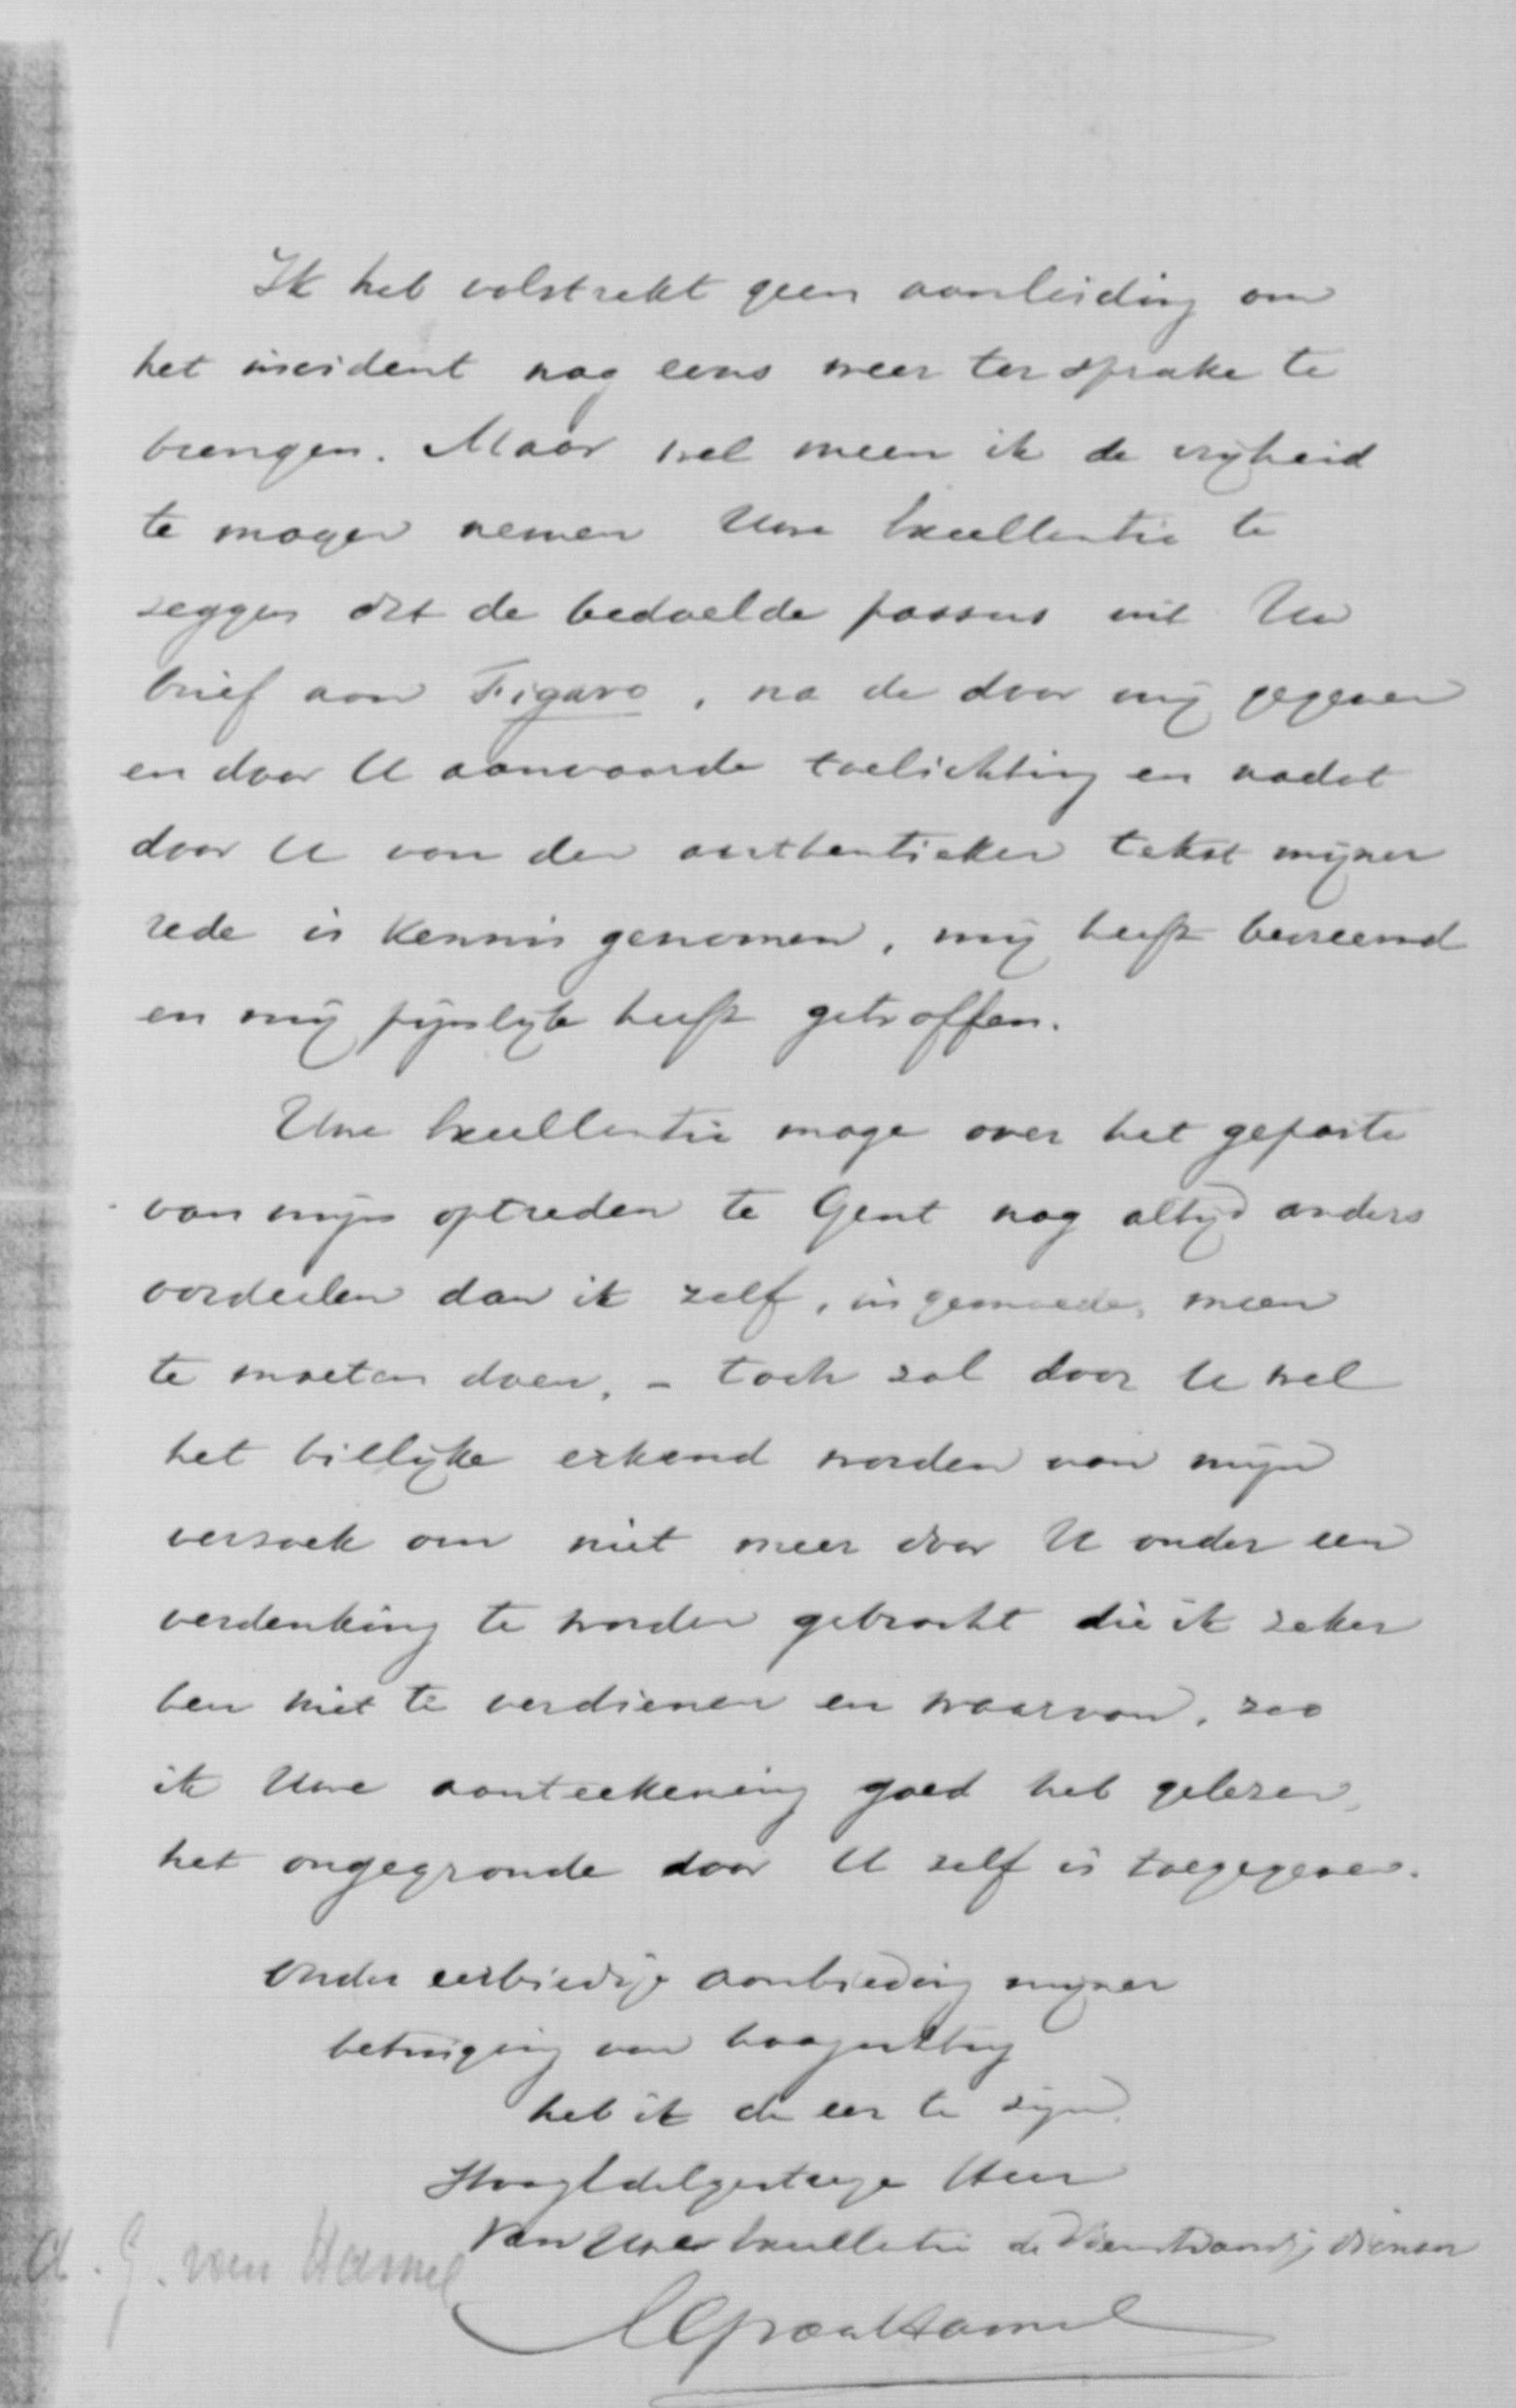 Ik heb volstrekt geen aanleiding om
het incident nog eens weer ter sprake te
brengen. Maar wel meen ik de vrijheid
te mogen nemen Uwe Excellentie te
zeggen dat de bedoelde passus uit Uw
brief aan Figaro, na de door mij gegeven
en door U aanvaarde toelichting en nadat
door U van den authentieken tekst mijner
rede is kennis genomen, mij heeft bevreemd
en mij pijnlijk heeft getroffen.
Uwe Excellentie moge over het gepaste
van mijn optreden te Gent nog altijd anders
oordeelen dan ik zelf, in gemoede, meen
te moeten doen, - toch zal door U wel
het billijke erkend worden van mijn
verzoek om niet meer door U onder een
verdenking te worden gebracht die ik zeker
ben niet te verdienen en waarvan, zoo
ik Uwe aanteekening goed heb gelezen,
het ongegronde door U zelf is toegegeven.
Onder eerbiedige aanbieding mijner
betuiging van hoogachting
heb ik de eer te zijn
HoogEdelgestrenge Heer
Van Uwe Excellentie de dienstwaardige dienaar
A. G. van Hamel
AGvanHamel